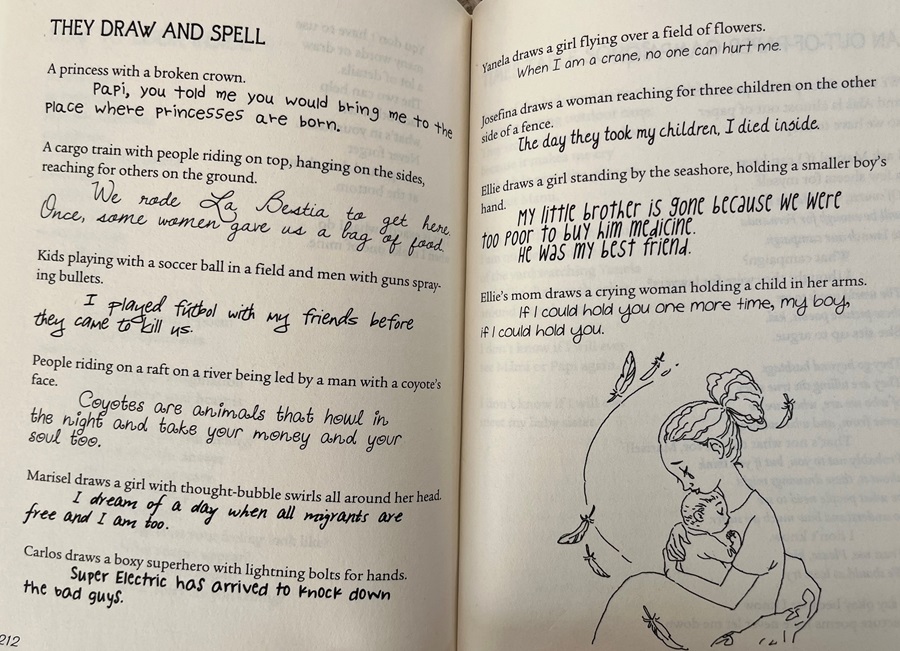 THEY DRAW AND SPELL
A princess with a broken crown.
Papi, you told me you would bring me to the
place where princesses are born.
A cargo train with people riding on top, hanging on the sides,
reaching for others on the ground.
We rode La Bestia to get here.
Once, some women gave us a bag of food.
Kids playing with a soccer ball in a field and men with guns spray-
ing bullets.
I played fútbol with my friends before
they came to kill us.
People riding on a raft on a river being led by a man with a coyote's
face.
Coyotes are animals that howl in
the night and take your money and your
soul too.
Marisel draws a girl with thought-bubble swirls all around her head.
I dream of a day when all migrants are
free and I am too.
Carlos draws a boxy superhero with lightning bolts for hands.
Super Electric has arrived to knock down
the bad guys.
212
Yanela draws a girl flying over a field of flowers.
When I am a crane, no one can hurt me.
Josefina draws a woman reaching for three children on the other
side of a fence.
The day they took my children, I died inside.
Ellie draws a girl standing by the seashore, holding a smaller boy's
hand.
My little brother is gone because we were
too poor to buy him medicine.
He was my best friend.
Ellie's mom draws a crying woman holding a child in her arms.
If I could hold you one more time, my boy,
if I could hold you.